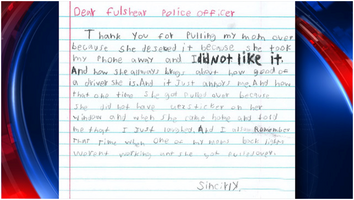 Dear Fulshear Police officer
Thank you for Pulling my mom over
because she deseved it because she took
my Phone away and I did Not like it.
And how she allways brags about how good of
a driver she is. And it Just annoys me. And how
that one time she got Pulled over because
she did not have sticker on her
window and when she came home and told
me that I Just laughed. And I allso Remember
that time when one of my moms back lights
werent working and she got pulled over.
Sincirly,